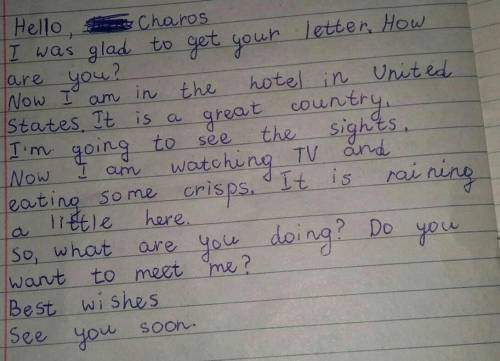 Hello, Charos
I was glad to get your letter. How
are you?
Now I am in the hotel in United
States. It is a great country.
I'm going to see the sights.
Now I am watching TV and
eating some crisps. It is raining
a little here.
So, what are you doing? Do you
want to meet me?
Best wishes
See you soon.